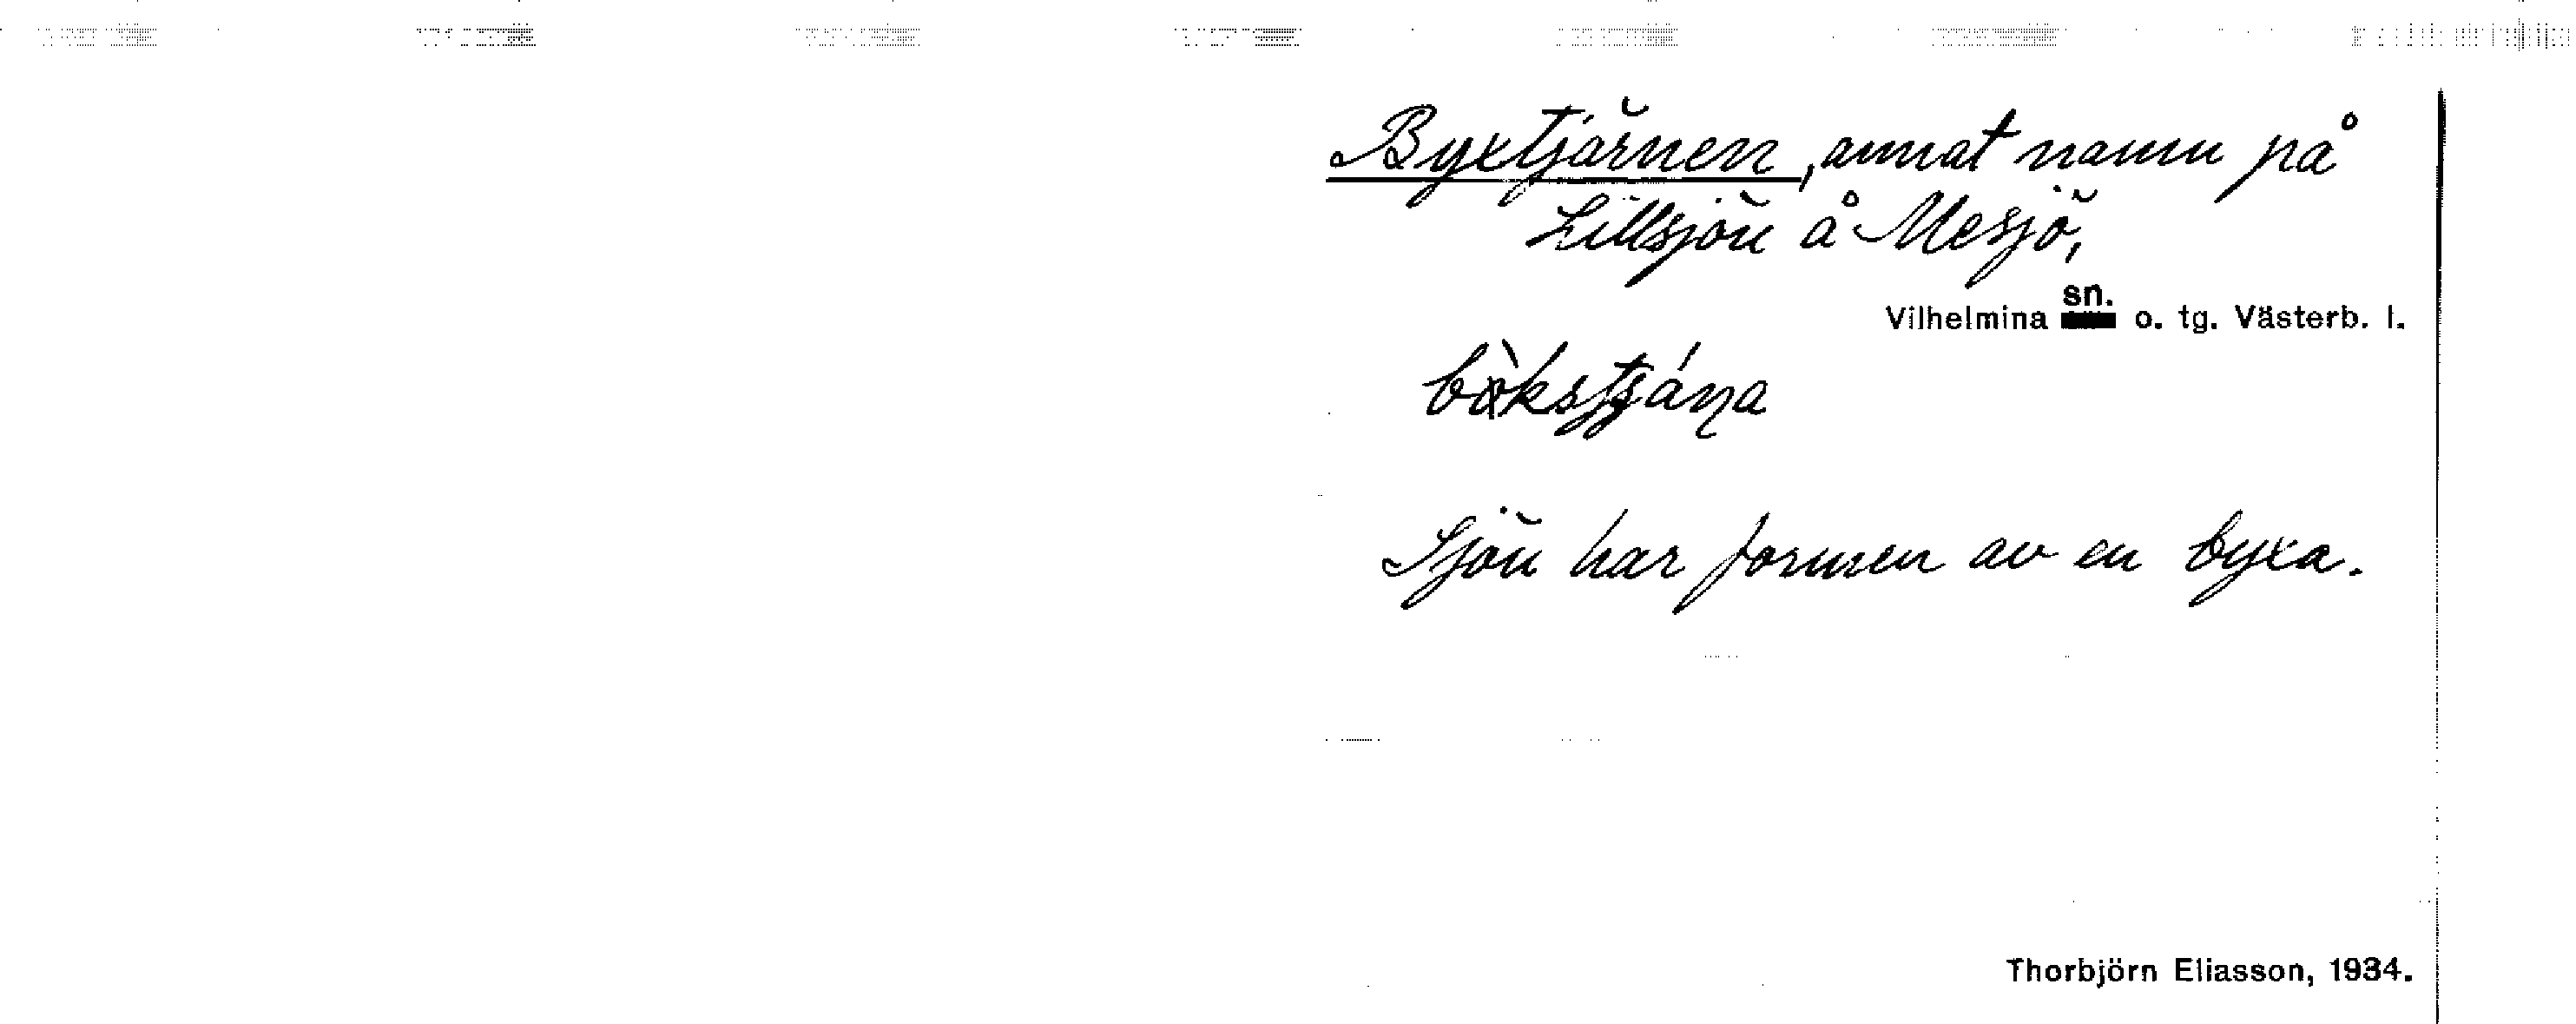 Byxtjärnen, annat namn på
Lillsjön å Mesjö,
Vilhelmina sn. o. tg. Västerb. l.
Sjön har formen av en byxa.
Thorbjörn Eliasson, 1934.